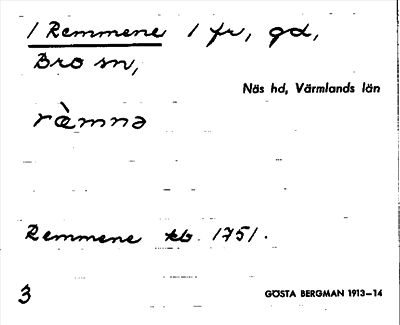 1 Remmene 1 fr, gd,
Bro sn,
Näs hd, Värmlands län
rèmnə
Remmene kb. 1751.
3
GÖSTA BERGMAN 1913–14